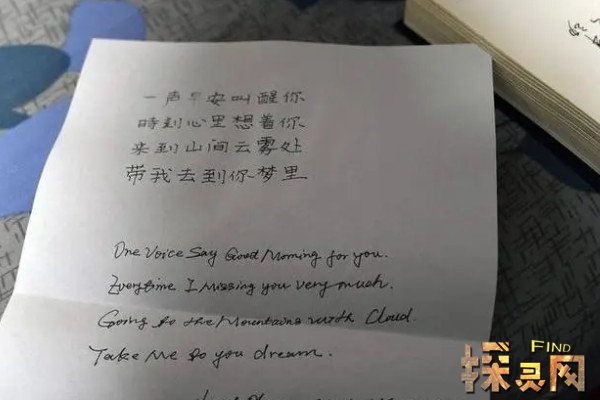 一声早安叫醒你
時刻心里想着你
来到山间云雾处
带我去到你梦里
One Voice Say Good Morning for you.
Everytime I Missing you very much.
Going to the Mountains with Cloud.
Take Me to you dream.
FIND
探灵网